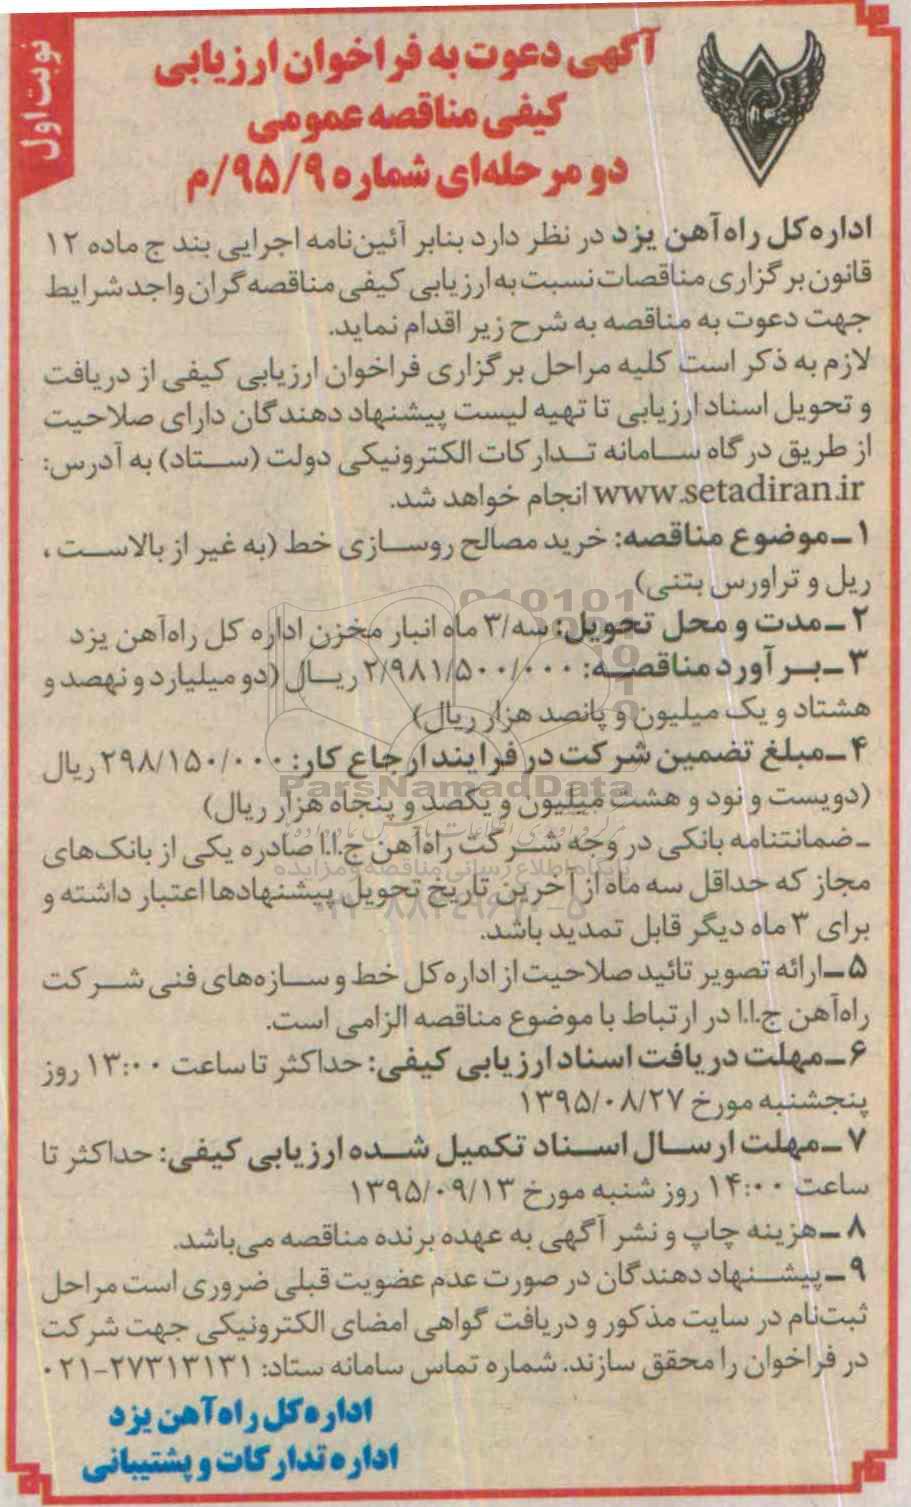 نوبت اول
آگهی دعوت به فراخوان ارزیابی
کیفی مناقصه عمومی
دو مرحله‌ای شماره ۹۵/۹/م
اداره کل راه‌آهن یزد در نظر دارد بنابر آئین‌نامه اجرایی بند ج ماده ۱۲
قانون برگزاری مناقصات نسبت به ارزیابی کیفی مناقصه‌گران واجد شرایط
جهت دعوت به مناقصه به شرح زیر اقدام نماید.
لازم به ذکر است کلیه مراحل برگزاری فراخوان ارزیابی کیفی از دریافت
و تحویل اسناد ارزیابی تا تهیه لیست پیشنهاد دهندگان دارای صلاحیت
از طریق درگاه سامانه تدارکات الکترونیکی دولت (ستاد) به آدرس:
www.setadiran.ir انجام خواهد شد.
۱ـ موضوع مناقصه: خرید مصالح روسازی خط (به غیر از بالاست ،
ریل و تراورس بتنی)
۲ـ مدت و محل تحویل: سه/۳ ماه انبار مخزن اداره کل راه‌آهن یزد
۳ـ برآورد مناقصه: ۲/۹۸۱/۵۰۰/۰۰۰ ریال (دو میلیارد و نهصد و
هشتاد و یک میلیون و پانصد هزار ریال)
۴ـ مبلغ تضمین شرکت در فرایند ارجاع کار: ۲۹۸/۱۵۰/۰۰۰ ریال
(دویست و نود و هشت میلیون و یکصد و پنجاه هزار ریال)
ParsNamadData
ـ ضمانتنامه بانکی در وجه شرکت راه‌آهن ج.ا.ا صادره یکی از بانک‌های
پایگاه اطلاع رسانی مناقصه و مزایده
مجاز که حداقل سه ماه از آخرین تاریخ تحویل پیشنهادها اعتبار داشته و
برای ۳ ماه دیگر قابل تمدید باشد.
۵ـ ارائه تصویر تائید صلاحیت از اداره کل خط و سازه‌های فنی شرکت
راه‌آهن ج.ا.ا در ارتباط با موضوع مناقصه الزامی است.
۶ـ مهلت دریافت اسناد ارزیابی کیفی: حداکثر تا ساعت ۱۳:۰۰ روز
پنجشنبه مورخ ۱۳۹۵/۰۸/۲۷
۷ـ مهلت ارسال اسناد تکمیل شده ارزیابی کیفی: حداکثر تا
ساعت ۱۴:۰۰ روز شنبه مورخ ۱۳۹۵/۰۹/۱۳
۸ ـ هزینه چاپ و نشر آگهی به عهده برنده مناقصه می‌باشد.
۹ـ پیشنهاد دهندگان در صورت عدم عضویت قبلی ضروری است مراحل
ثبت‌نام در سایت مذکور و دریافت گواهی امضای الکترونیکی جهت شرکت
در فراخوان را محقق سازند. شماره تماس سامانه ستاد: ۰۲۱-۲۷۳۱۳۱۳۱
اداره کل راه‌آهن یزد
اداره تدارکات و پشتیبانی